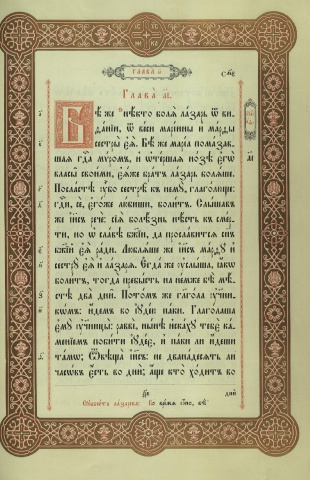 Глава́ а҃і.
Бѣ́ же нѣ́кто болѧ̀ ла́зарь ѿ ви-
ѳа́нїи, ѿ ве́си марі́ины и҆ ма́рѳы
сестры̀ є҆ѧ̀. Бѣ́ же марі́а пома́зав-
шаѧ гдⷭ҇а мѵ́ромъ, и҆ ѡ҆те́ршаѧ но́зѣ є҆гѡ̀
власы̀ свои́ми, є҆ѧ́же бра́тъ ла́зарь болѧ́ше.
Посла́стѣ ᲂу҆̀бо сестрѣ̀ къ немꙋ̀, глаго́лющѣ:
гдⷭ҇и, сѐ, є҆го́же лю́биши, боли́тъ. Слы́шавъ
же і҆и҃съ речѐ: сїѧ̀ болѣ́знь нѣ́сть къ сме́р-
ти, но ѡ҆ сла́вѣ бж҃їи, да просла́витсѧ сн҃ъ
бж҃їй є҆ѧ̀ ра́ди. Люблѧ́ше же і҆и҃съ ма́рѳꙋ и҆
сестрꙋ̀ є҆ѧ̀ и҆ ла́зарѧ. Є҆гда́ же ᲂу҆слы́ша, ꙗ҆́кѡ
боли́тъ, тогда̀ пребы́сть на не́мже бѣ̀ мѣ́-
стѣ два̀ дни̑. Пото́мъ же глаго́ла ᲂу҆ченикѡ́мъ:
и҆́демъ во і҆ꙋде́ю па́ки. Глаго́лаша
є҆мꙋ̀ ᲂу҆чн҃цы̀: равві̀, нн҃ѣ и҆ска́хꙋ тебѐ ка́-
менїемъ поби́ти і҆ꙋде́є, и҆ па́ки ли и҆́деши
та́мѡ; Ѿвѣща̀ і҆и҃съ: не двана́десѧть ли
часѡ́въ є҆́сть во днѝ; а҆́ще кто̀ хо́дитъ во
днѝ